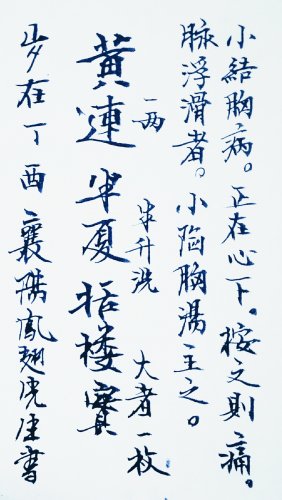 小結胸病。正在心下。按之則痛。
脉浮滑者。小陷胸湯主之。
一两 半升洗 大者一枚
黃連 半夏 栝楼實
岁在丁酉 襄陽鳳 書